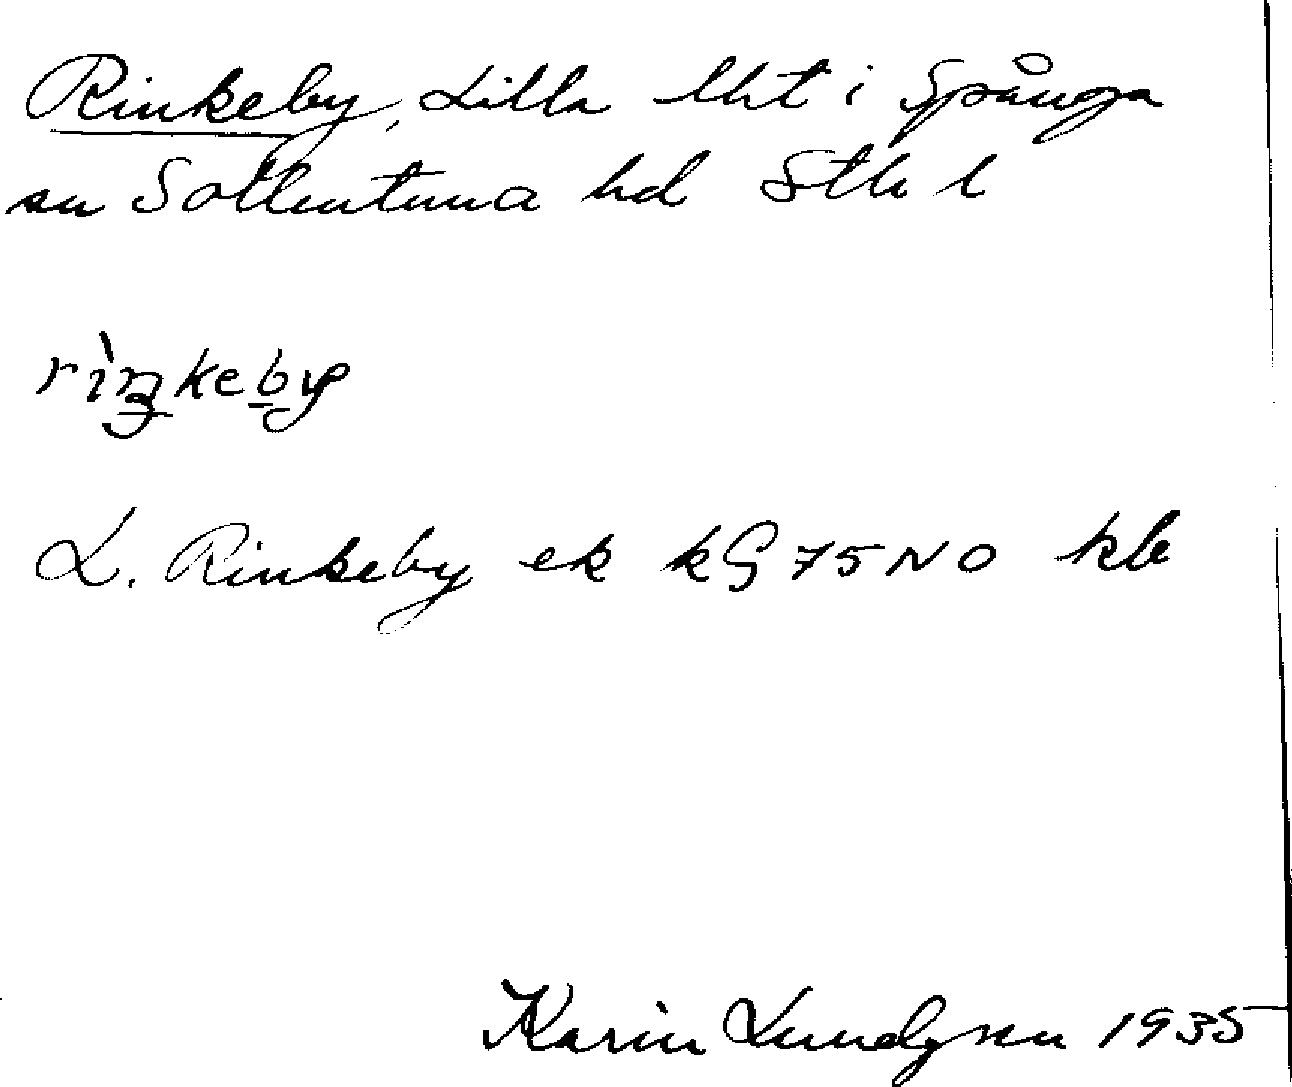 Rinkeby, Lilla lht i Spånga
sn Sollentuna hd Sth l
rìŋkeby
L. Rinkeby ek kG 75 NO kb
Karin Lundgren 1935